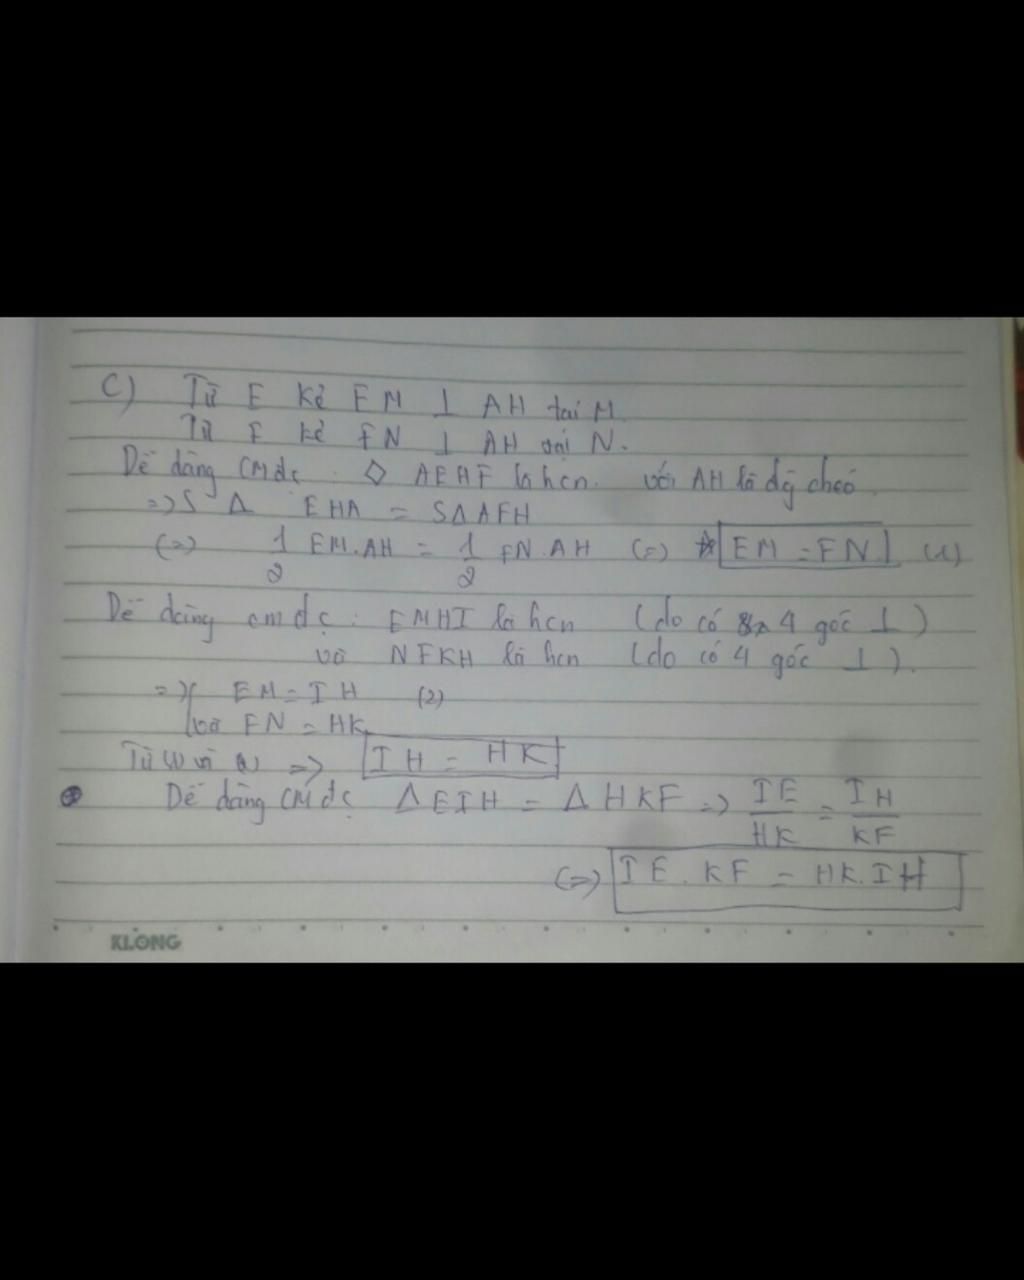 C) Từ E kẻ EM ⊥ AH tại M.
Từ F kẻ FN ⊥ AH tại N.
Dễ dàng CM đc : ◇ AEHF là hcn. với AH là đg chéo.
=> S Δ EHA = SΔAFH
(=) 1/2 EM.AH = 1/2 FN.AH (=) EM = FN (1)
Dễ dàng cm đc : EMHI là hcn (do có 4 góc ⊥)
và NFKH là hcn (do có 4 góc ⊥).
=> { EM = IH (2)
và FN = HK
Từ (1) và (2) => IH = HK
Dễ dàng CM đc ΔEIH = ΔHKF => IE/HK = IH/KF
(=>) IE.KF = HK.IH
KLONG